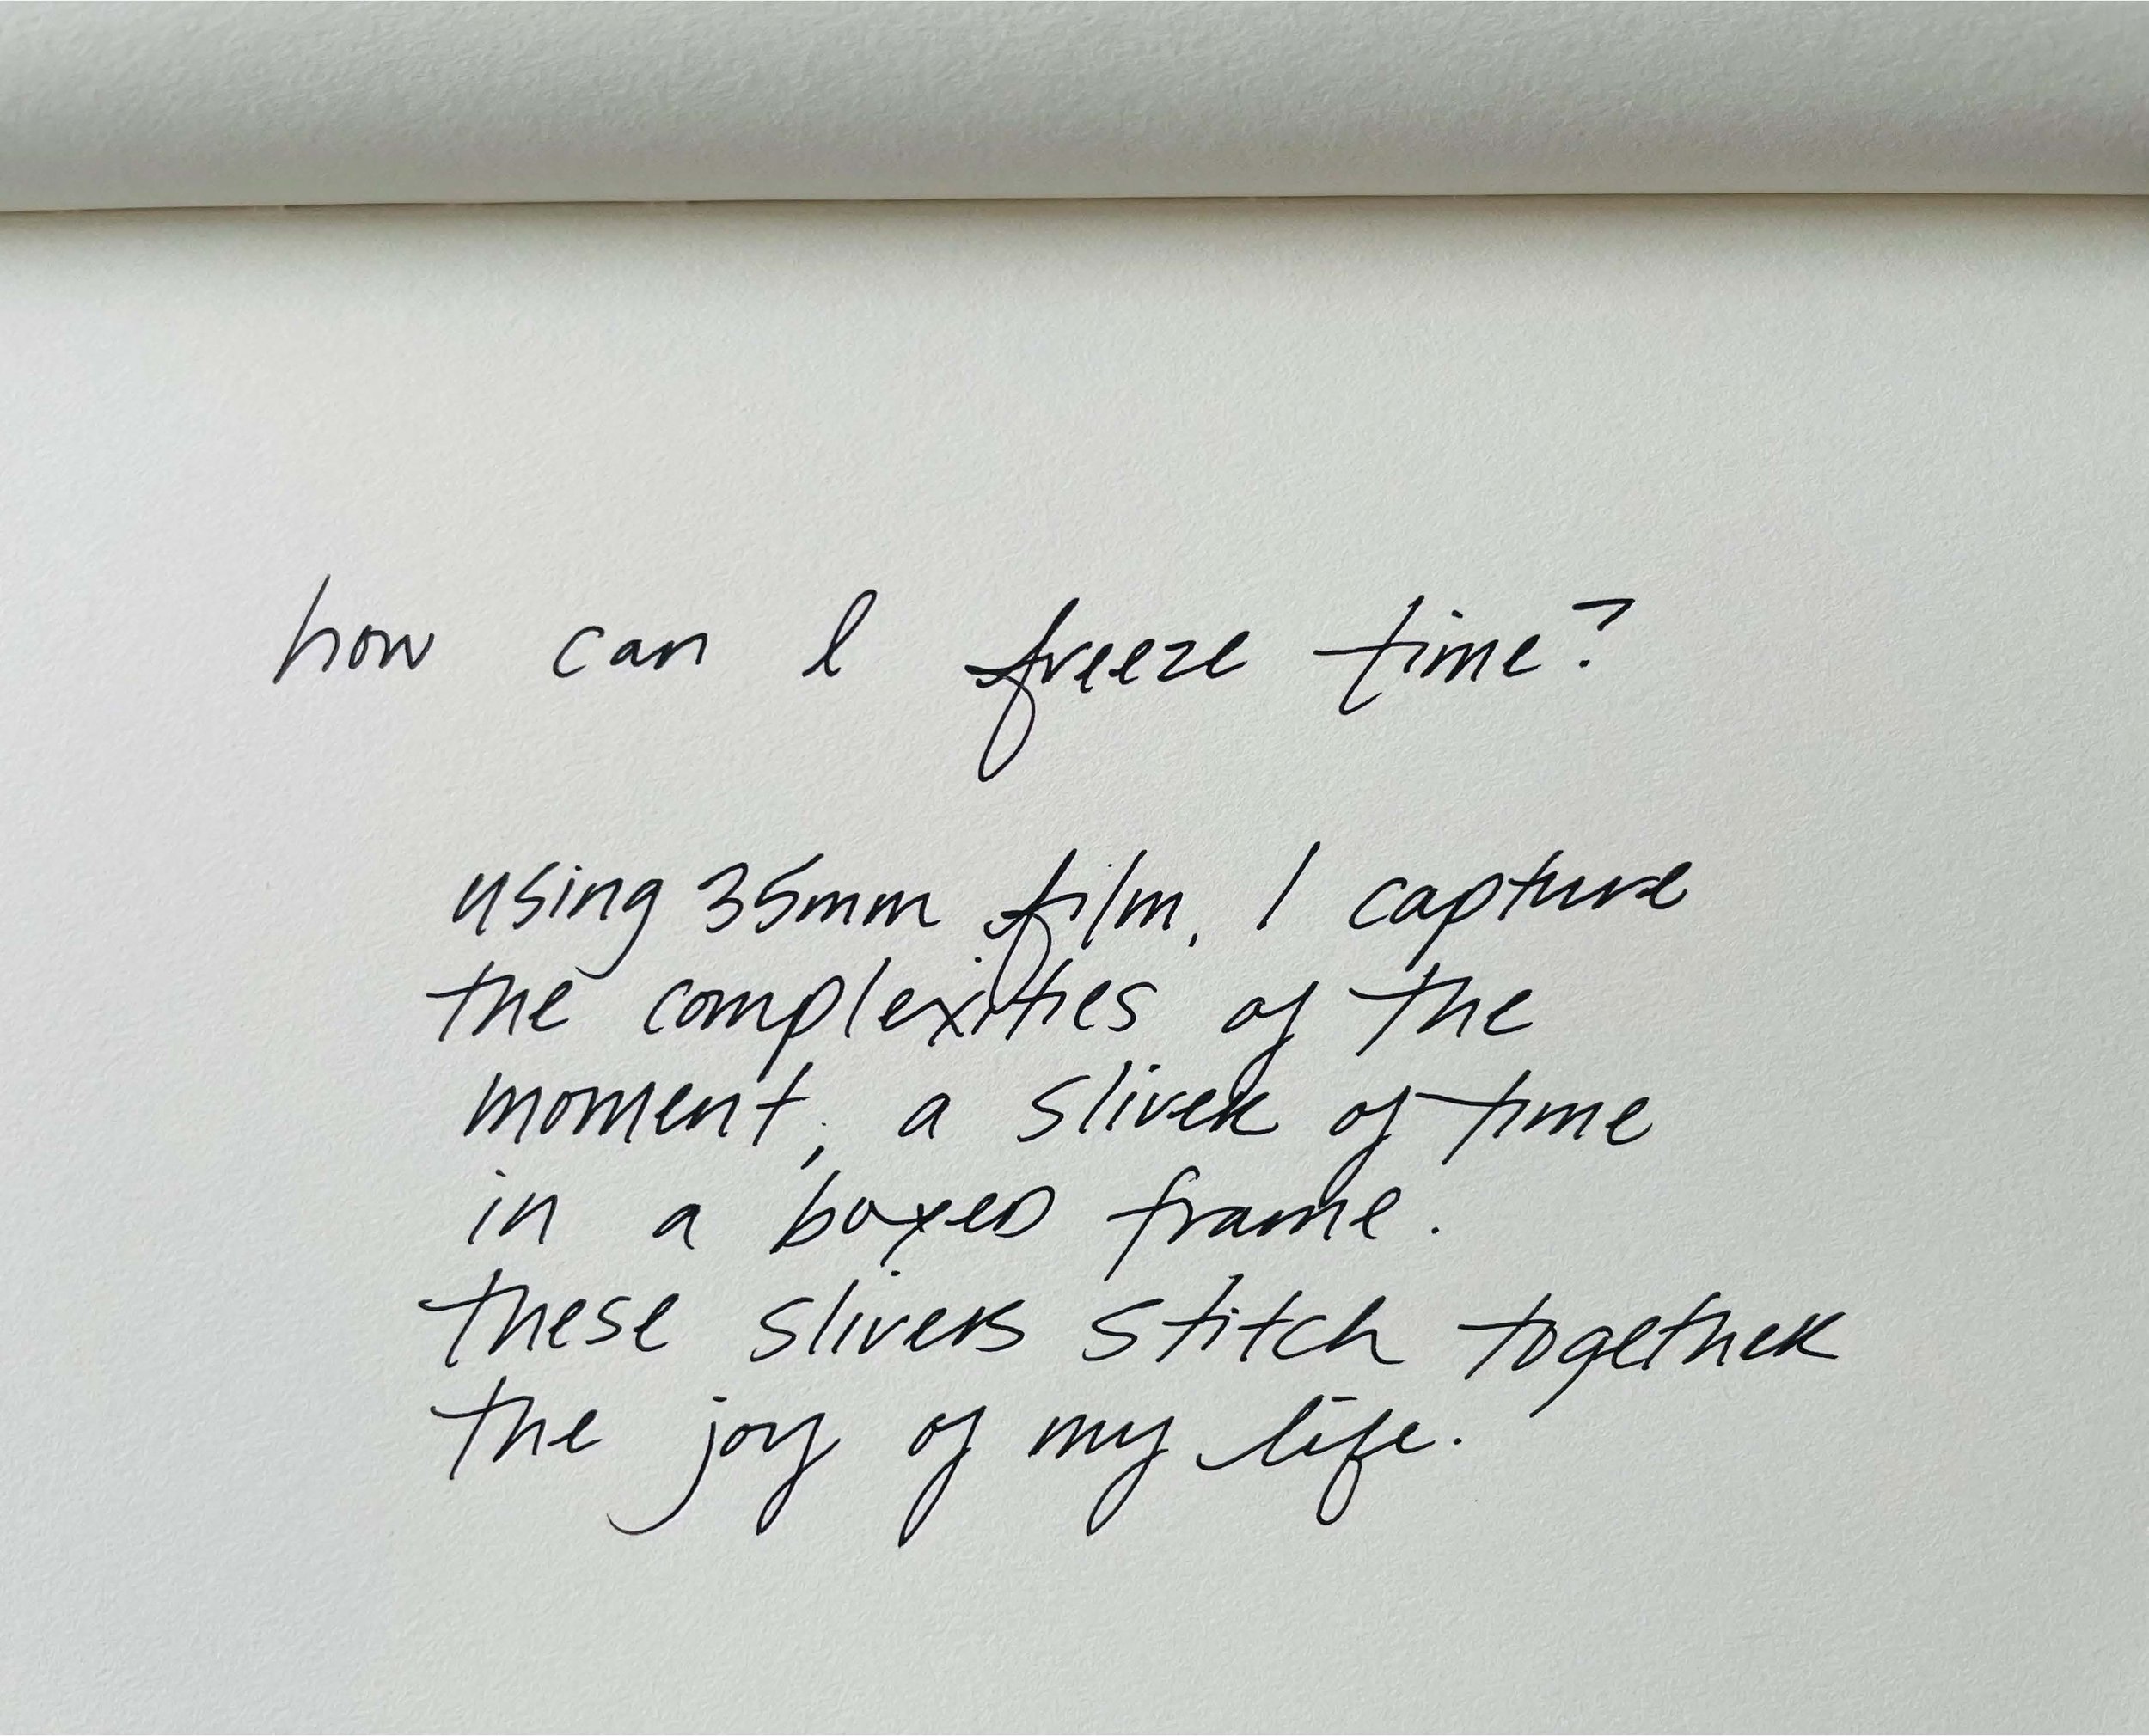 how can I freeze time?
using 35mm film, I capture
the complexities of the
moment, a sliver of time
in a boxed frame.
these slivers stitch together
the joy of my life.